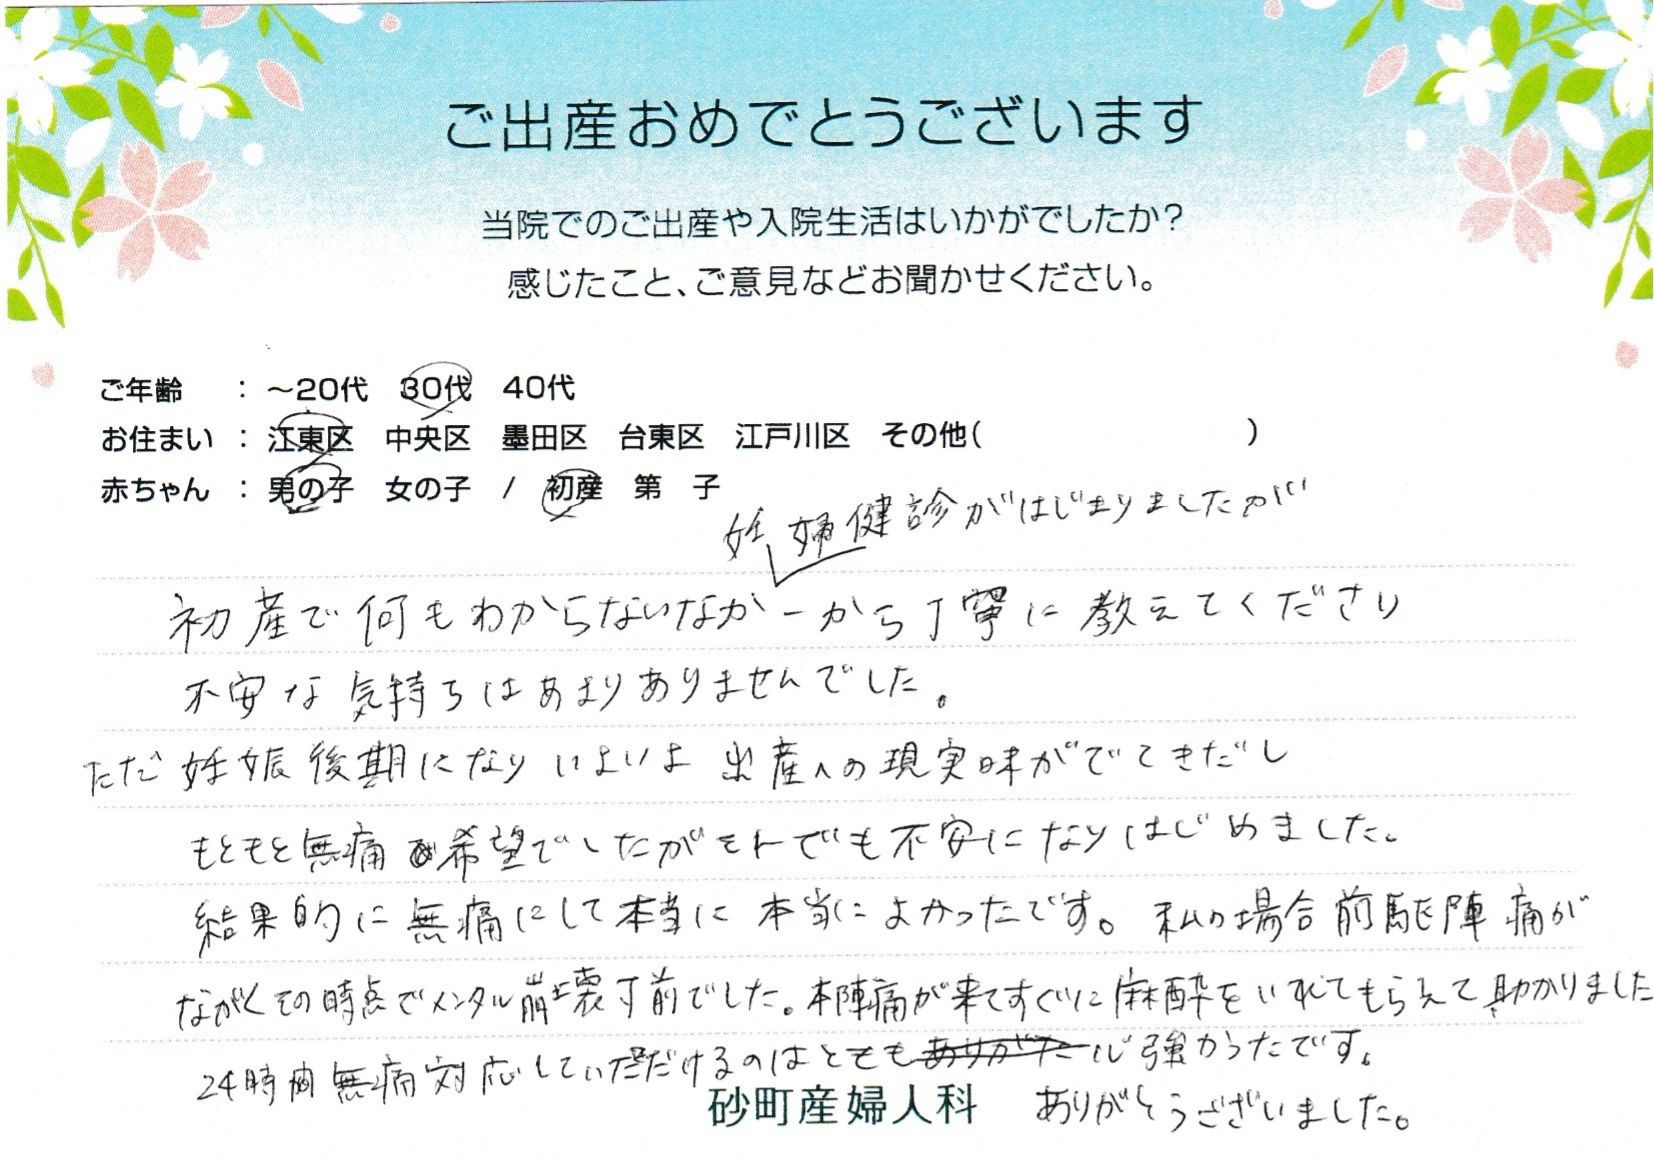 ご出産おめでとうございます
当院でのご出産や入院生活はいかがでしたか?
感じたこと、ご意見などお聞かせください。
ご年齢 : ～20代 30代 40代
お住まい : 江東区 中央区 墨田区 台東区 江戸川区 その他( )
赤ちゃん : 男の子 女の子 / 初産 第 子
妊婦健診がはじまりましたが
初産で何もわからないなか一から丁寧に教えてくださり
不安な気持ちはあまりありませんでした。
ただ妊娠後期になりいよいよ出産への現実味がでてきだし
もともと無痛希望でしたがそれでも不安になりはじめました。
結果的に無痛にして本当に本当によかったです。私の場合前駆陣痛が
ながくその時点でメンタル崩壊寸前でした。本陣痛が来てすぐに麻酔をいれてもらえて助かりました
24時間無痛対応していただけるのはとても ありがた 心強かったです。
砂町産婦人科 ありがとうございました。